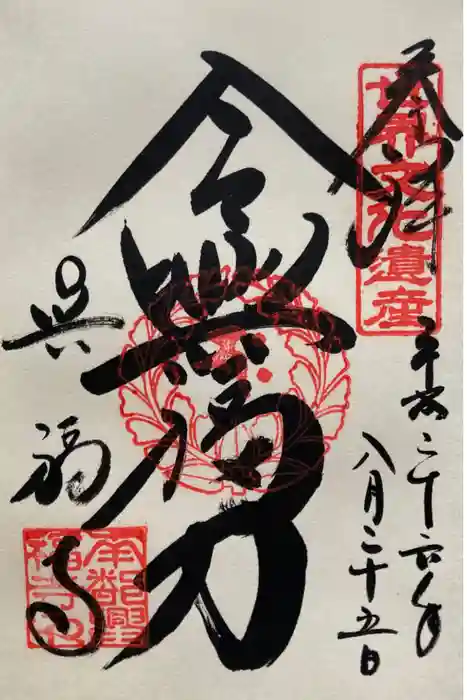 奉拝
世界文化遺産
平成二十六年
八月二十五日
令興福力
興福寺
南都興
福寺印